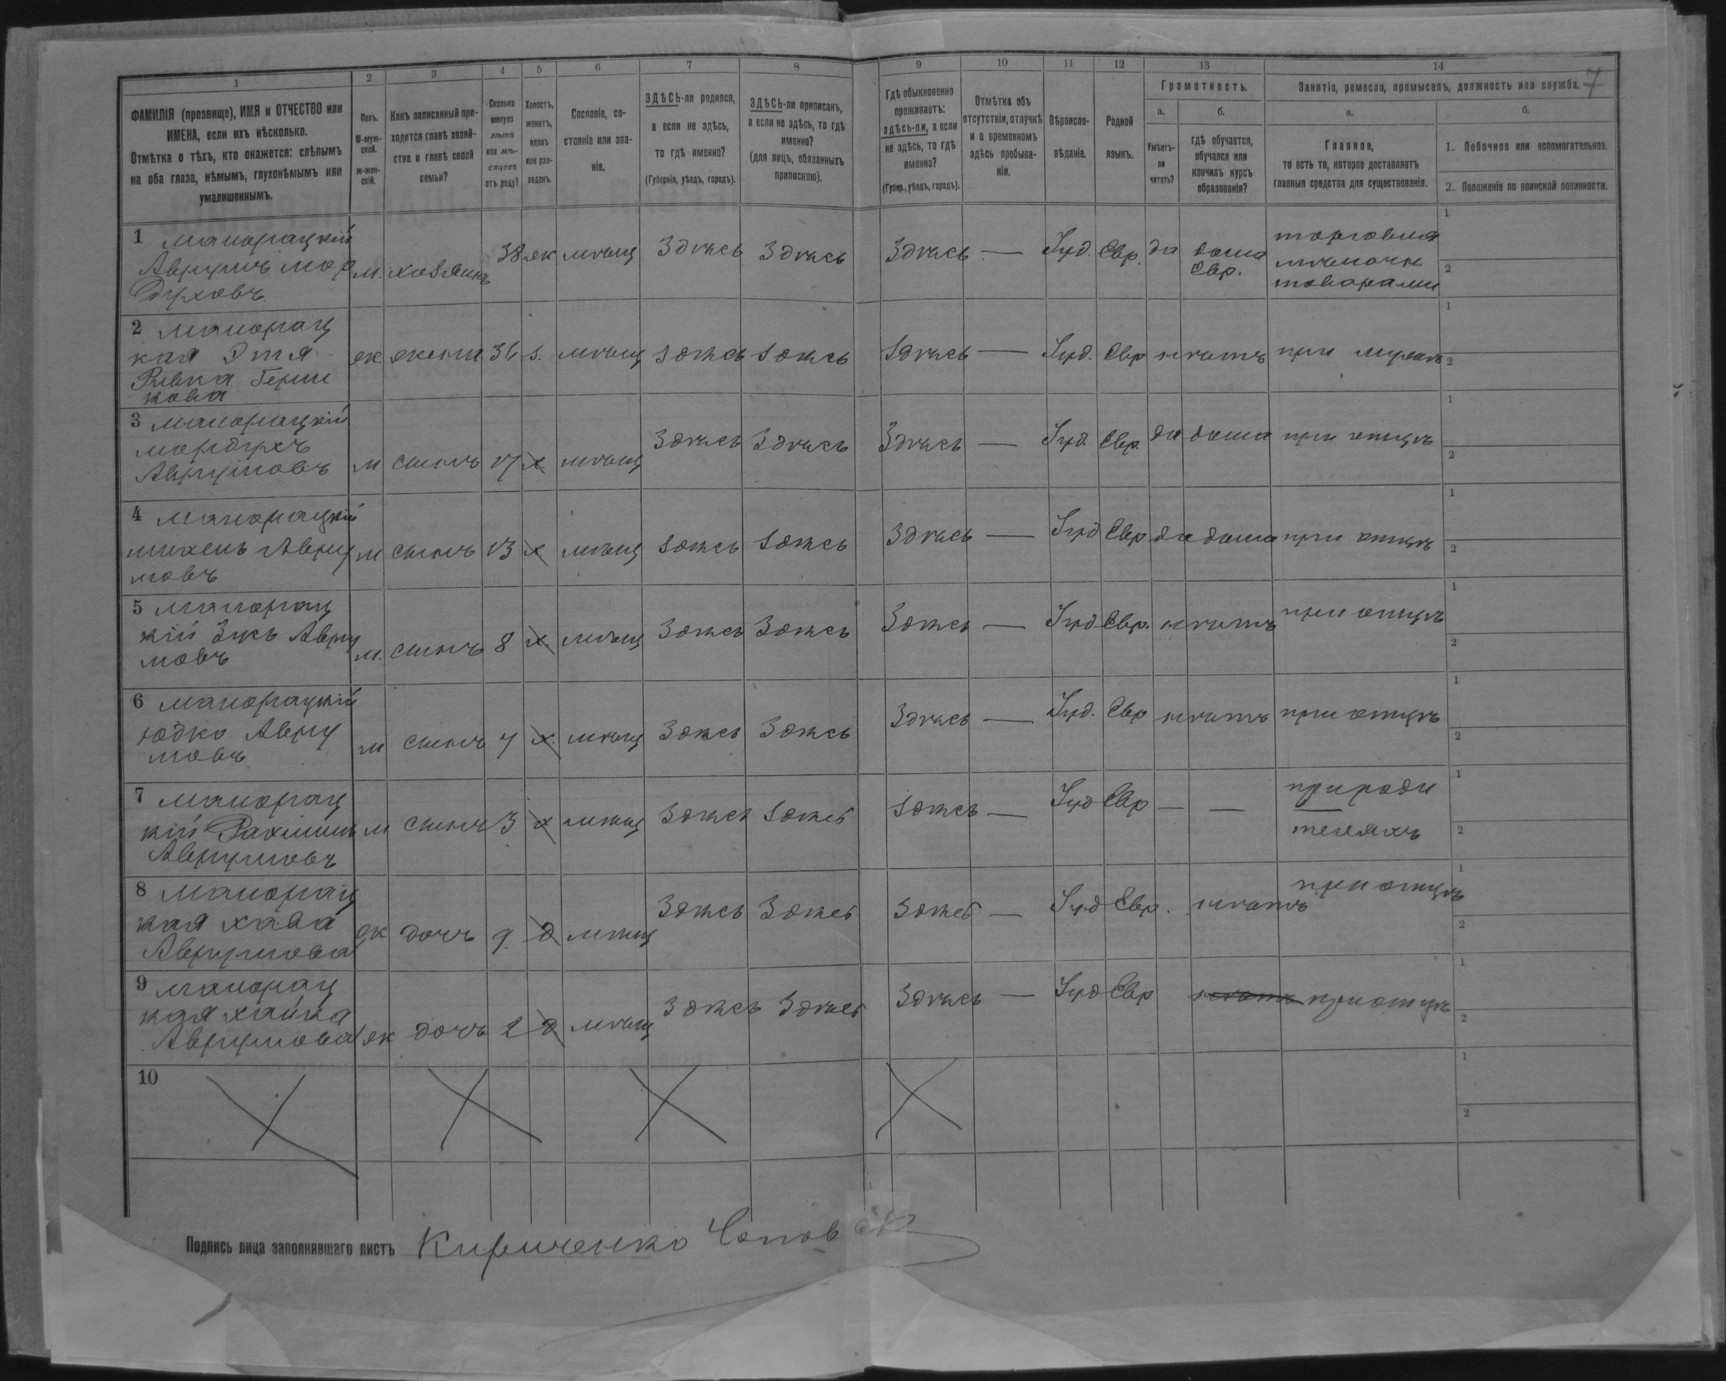 1 2 3 4 5 6 7 8 9 10 11 12 13 14
7
ФАМИЛІЯ (прозвище), ИМЯ и ОТЧЕСТВО или
ИМЕНА, если ихъ нѣсколько.
Отмѣтка о тѣхъ, кто окажется: слѣпымъ
на оба глаза, нѣмымъ, глухонѣмымъ или
умалишеннымъ.
Полъ.
М-муж-
ской.
ж-жен-
скій.
Какъ записанный при-
ходится главѣ хозяй-
ства и главѣ своей
семьи?
Сколько
минуло
лѣтъ
или мѣ-
сяцевъ
отъ роду?
Холостъ,
женатъ,
вдовъ
или раз-
веденъ.
Сословіе, со-
стояніе или зва-
ніе.
ЗДѢСЬ-ли родился,
а если не здѣсь,
то гдѣ именно?
(Губернія, уѣздъ, городъ).
ЗДѢСЬ-ли приписанъ,
а если не здѣсь, то гдѣ
именно?
(для лицъ, обязанныхъ
припискою).
Гдѣ обыкновенно
проживаетъ:
здѣсь-ли, а если
не здѣсь, то гдѣ
именно?
(Губер., уѣздъ, городъ).
Отмѣтка объ
отсутствіи, отлучкѣ
и о временномъ
здѣсь пребыва-
ніи.
Вѣроиспо-
вѣданіе.
Родной
языкъ.
Грамотность.
а.
Умѣетъ-
ли
читать?
б.
гдѣ обучается,
обучался или
кончилъ курсъ
образованія?
Занятіе, ремесло, промыселъ, должность или служба.
а.
Главное,
то есть то, которое доставляетъ
главныя средства для существованія.
б.
1. Побочное или вспомогательное.
2. Положеніе по воинской повинности.
1
Аврумъ Мор
духовъ
м. хозяинъ 38 ж мѣщ Здѣсь Здѣсь Здѣсь — Іуд. Евр. да дома
Евр.
торговля
мелочн
товарами
1
2
2
кая Этя
Ривка Герш
кова
ж жена 36 з. мѣщ Здѣсь Здѣсь Здѣсь — Іуд. Евр нѣтъ при мужѣ
1
2
3
Мордухъ
Аврумовъ
м сынъ 17 х мѣщ Здѣсь Здѣсь Здѣсь — Іуд Евр. да дома при отцѣ
1
2
4
Авру
мовъ
м сынъ 13 х мѣщ Здѣсь Здѣсь Здѣсь — Іуд Евр да дома при отцѣ
1
2
5
кій Авру
мовъ
м. сынъ 8 х мѣщ Здѣсь Здѣсь Здѣсь — Іуд Евр. нѣтъ при отцѣ
1
2
6
Юдко Авру
мовъ
м сынъ 7 х мѣщ Здѣсь Здѣсь Здѣсь — Іуд. Евр нѣтъ при отцѣ
1
2
7
кій Рахмиль
Аврумовъ
м сынъ 3 х мѣщ Здѣсь Здѣсь Здѣсь — Іуд Евр — — при роди
теляхъ
1
2
8
кая Хава
Аврумова
ж дочь 9 д мѣщ Здѣсь Здѣсь Здѣсь — Іуд Евр. нѣтъ при отцѣ
1
2
9
кая Хайка
Аврумова
ж дочь 2 д мѣщ Здѣсь Здѣсь Здѣсь — Іуд Евр нѣтъ при отцѣ
1
2
10
1
2
Подпись лица заполнявшаго листъ Кириченко